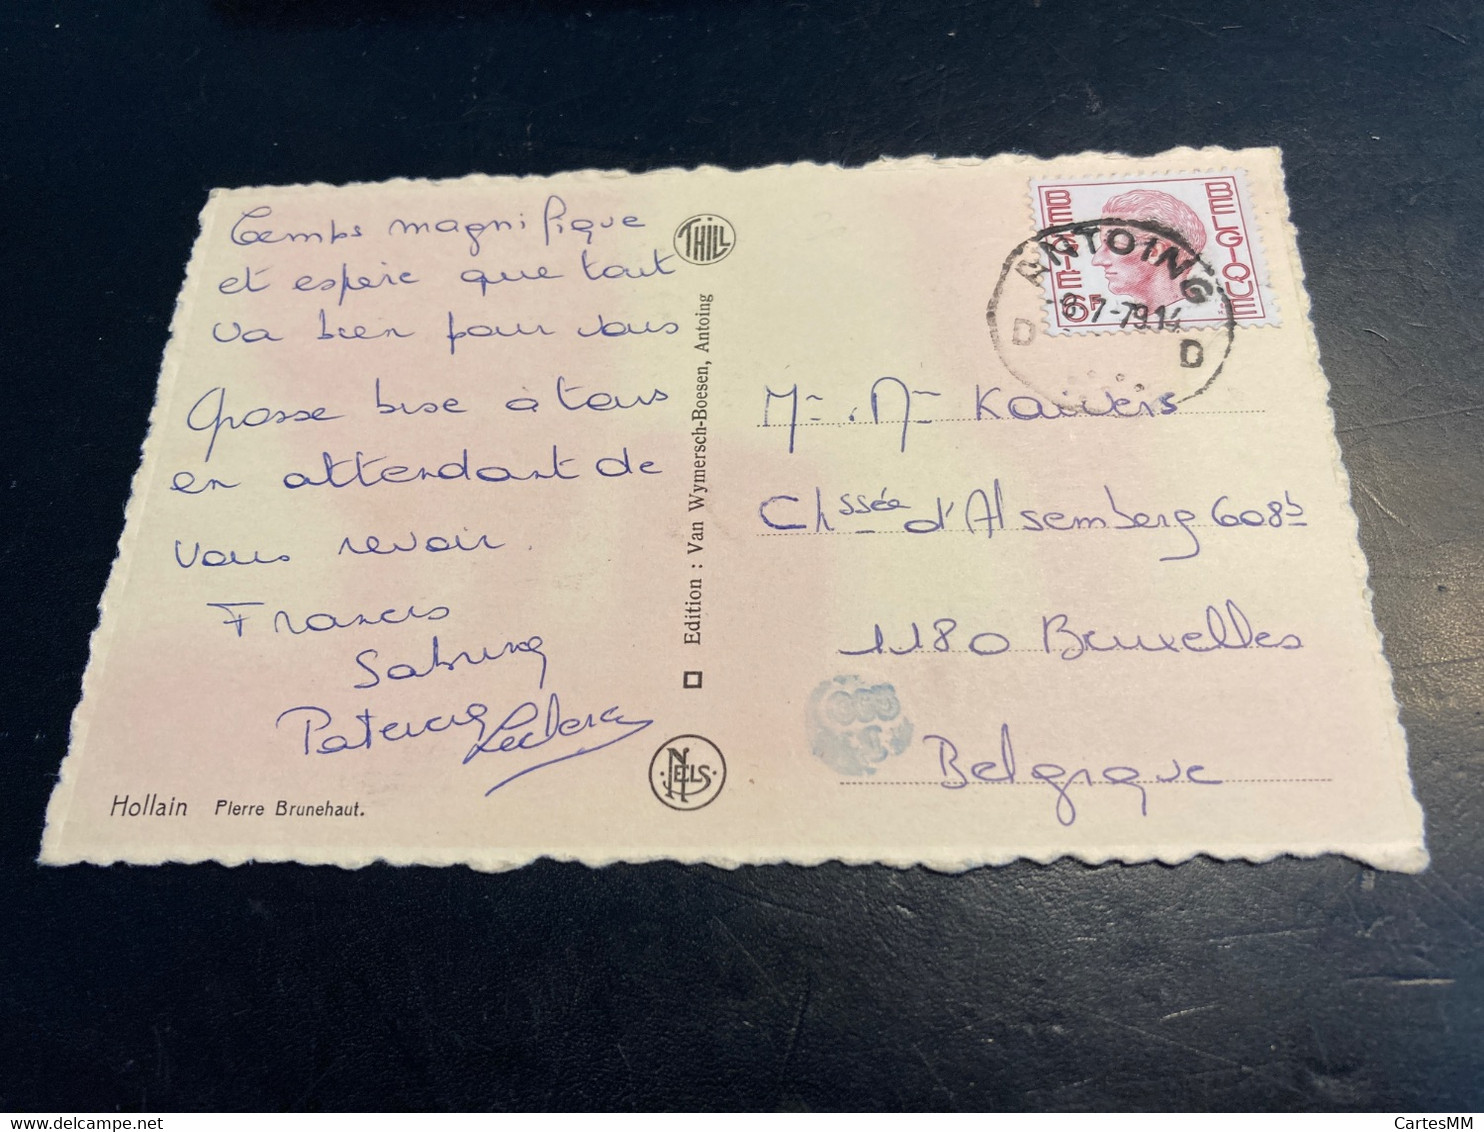 Temps magnifique
et espère que tout
va bien pour vous
Grosse bise à tous
en attendant de
vous revoir.
Francis
Sabrina
Leclerc
Hollain Pierre Brunehaut.
THILL
Edition : Van Wymersch-Boesen, Antoing
NELS
BELGIQUE
BELGIË
6F
ANTOING
-8-7-79.14
D D
Mr. Me Kauwers
Chssée d'Alsemberg 608b
1180 Bruxelles
Belgique
CartesMM